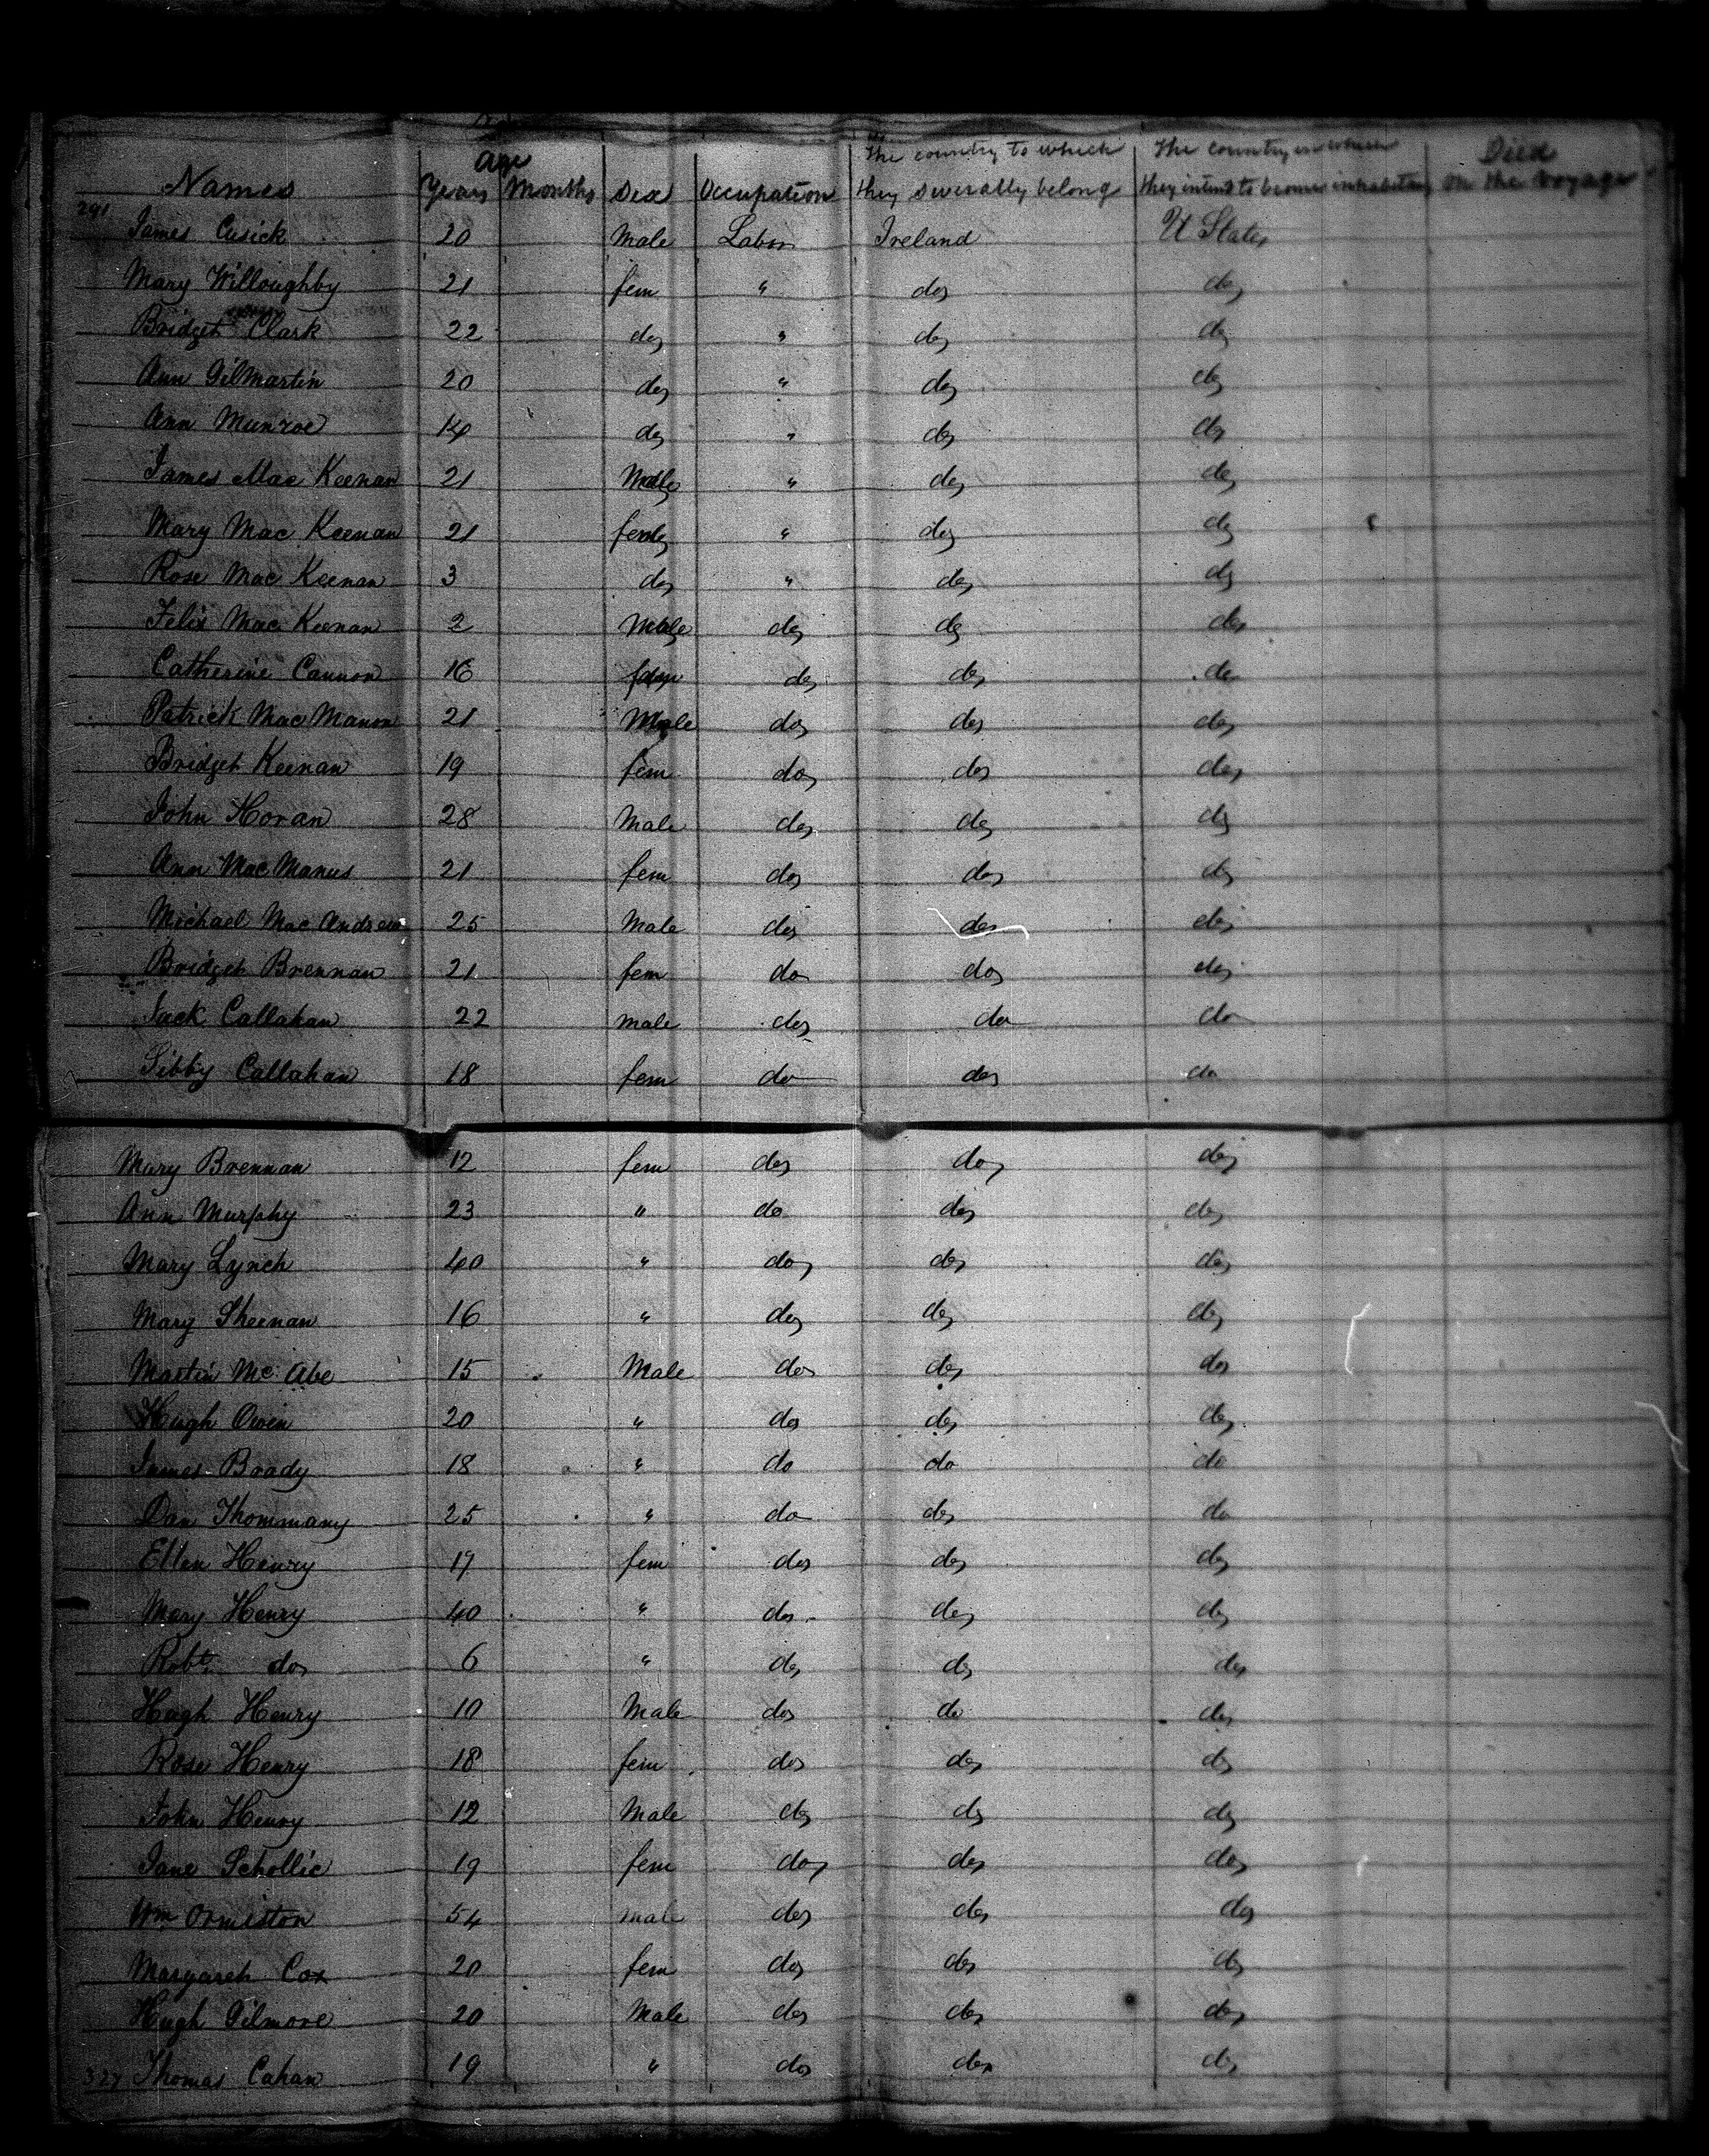 Age
The country to which The country in which Died
Names Years Months Sex Occupation they severally belong they intend to become inhabitants on the voyage
291 James Cusick 20 Male Labor Ireland U States
Mary Willoughby 21 fem " do do
Bridget Clark 22 do " do do
Ann Gilmartin 20 do " do do
Ann Munroe 14 do " do do
James Mac Keenan 21 Male " do do
Mary Mac Keenan 21 fem " do do
Rose Mac Keenan 3 do " do do
Felix Mac Keenan 2 Male do do do
Catherine Cannon 16 fem do do do
Patrick Mac Manon 21 Male do do do
Bridget Keenan 19 fem do do do
John Horan 28 Male do do do
Ann Mac Manus 21 fem do do do
Michael Mac Andrew 25 Male do do do
Bridget Brennan 21 fem do do do
Jack Callahan 22 male do do do
Sibby Callahan 18 fem do do do
Mary Brennan 12 fem do do do
Ann Murphy 23 " do do do
Mary Lynch 40 " do do do
Mary Sheenan 16 " do do do
Martin Mc Abe 15 Male do do do
Hugh Owen 20 " do do do
James Brady 18 " do do do
Dan Thommany 25 " do do do
Ellen Henry 19 fem do do do
Mary Henry 40 " do do do
Robt do 6 " do do do
Hugh Henry 10 Male do do do
Rose Henry 18 fem do do do
John Henry 12 Male do do do
Jane Schollic 19 fem do do do
Wm Ormiston 54 male do do do
Margaret Cox 20 fem do do do
Hugh Gilmore 20 Male do do do
327 Thomas Cahan 19 " do do do